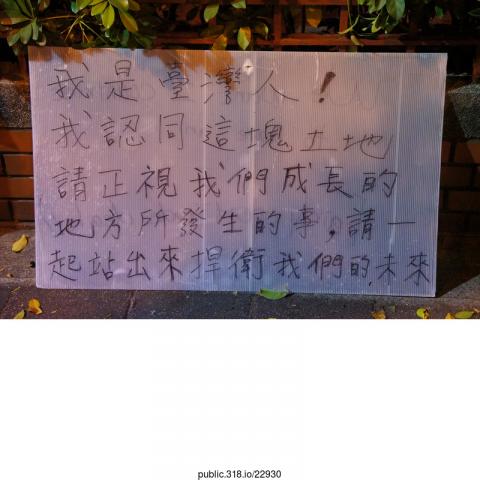 我是臺灣人！
我認同這塊土地
請正視我們成長的
地方所發生的事，請一
起站出來捍衛我們的未來
public.318.io/22930